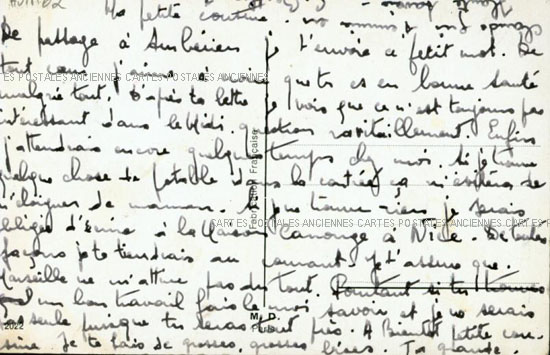 Ma petite cousine.
De passage à Ambérieu je t'envoie ce petit mot. De
tout coeur j'espère à voir que tu es en bonne santé
malgré tout. D'après ta lettre je vois que ce n'est toujours pas
intéressant dans le Midi, question ravitaillement. Enfin
j'attendrais encore quelque temps chez moi. Si je trouve
quelque chose de potable dans la contrée ça m'
éloigner de maman. Si je trouve rien je serais
obligée d'écrire à la Maison Canonge à Nice. De toutes
façons je te tiendrais au courant. Je t'assure que
Marseille ne m'attire pas du tout. Pourtant si tu trouves
un bon travail fais le moi savoir et je ne serais
pas seule puisque tu seras tout près. A Bientôt petite cou-
sine. Je te fais de grosses, grosses bises. Ta grande
CARTES POSTALES ANCIENNES CARTES POSTALES ANCIENNES
CARTES POSTALES ANCIENNES CARTES POSTALES ANCIENNES
Française
M. D.
2022